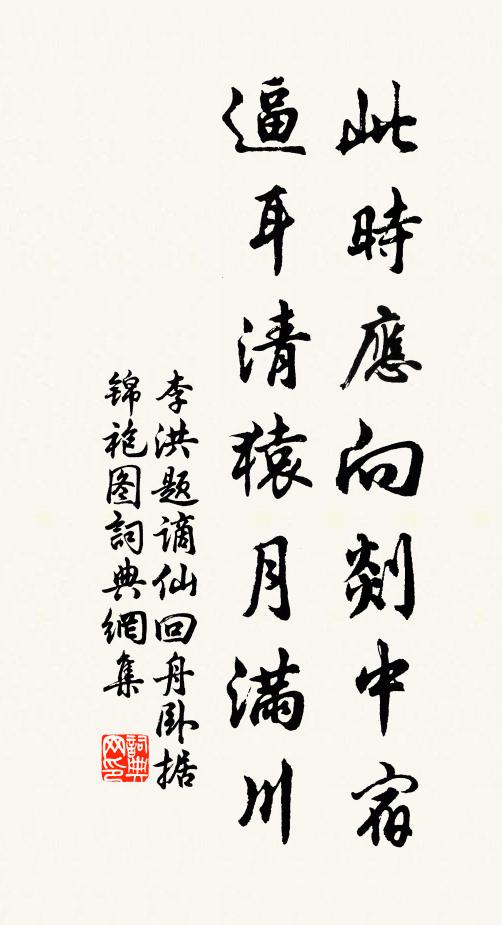 此時應向剡中宿
逼耳清猿月滿川
李洪题谪仙回舟卧据
锦袍图詞典網集
詞典
网印